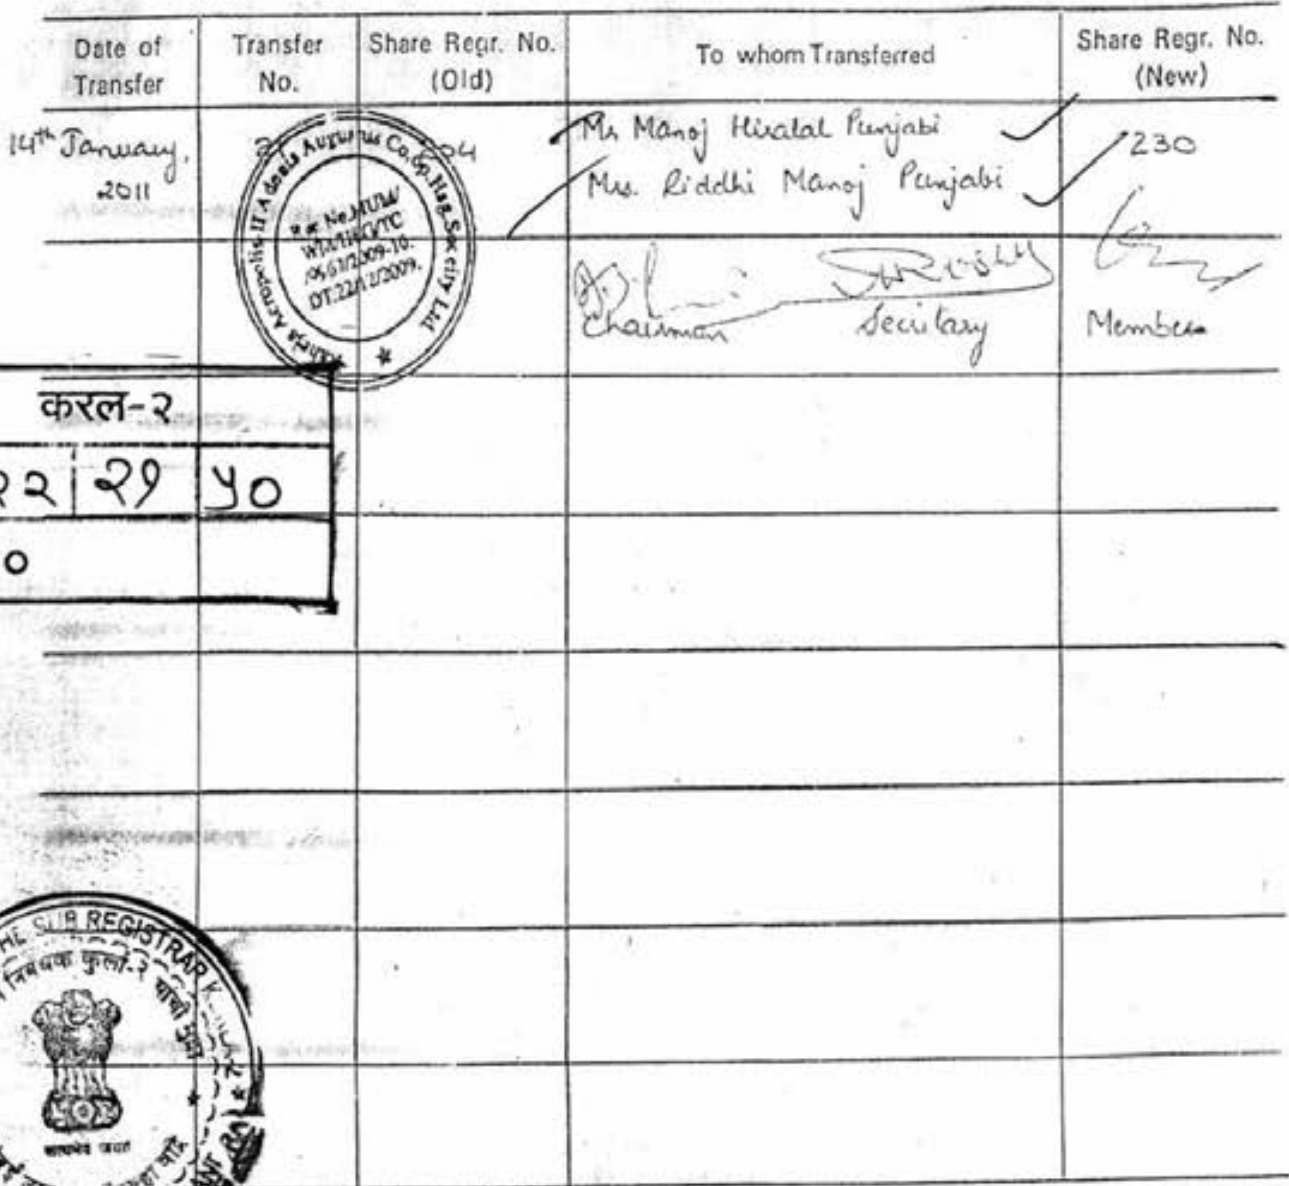 Date of Transfer
Transfer No.
Share Regr. No. (Old)
To whom Transferred
Share Regr. No. (New)
14th January, 2011
204
Mr Manoj Hiralal Punjabi
Mrs. Riddhi Manoj Punjabi
230
Chairman
Secretary
Member
Raheja Acropolis II Adonis Augustus Co.Op. Hsg. Society Ltd.
DT.22/12/2009.
करल-२
२१
५०
०
THE SUB REGISTRAR
निबंधक कुर्ला-२
सत्यमेव जयते